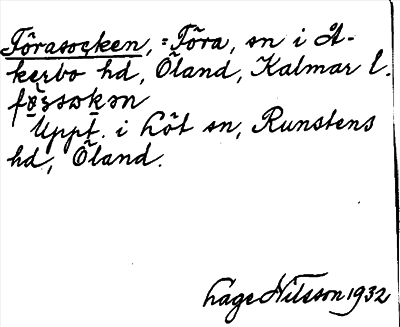 Förasocken, = Föra, sn i Å-
kerbo hd, Öland, Kalmar l.
Uppt. i Löt sn, Runstens
hd, Öland.
Lage Nilsson 1932